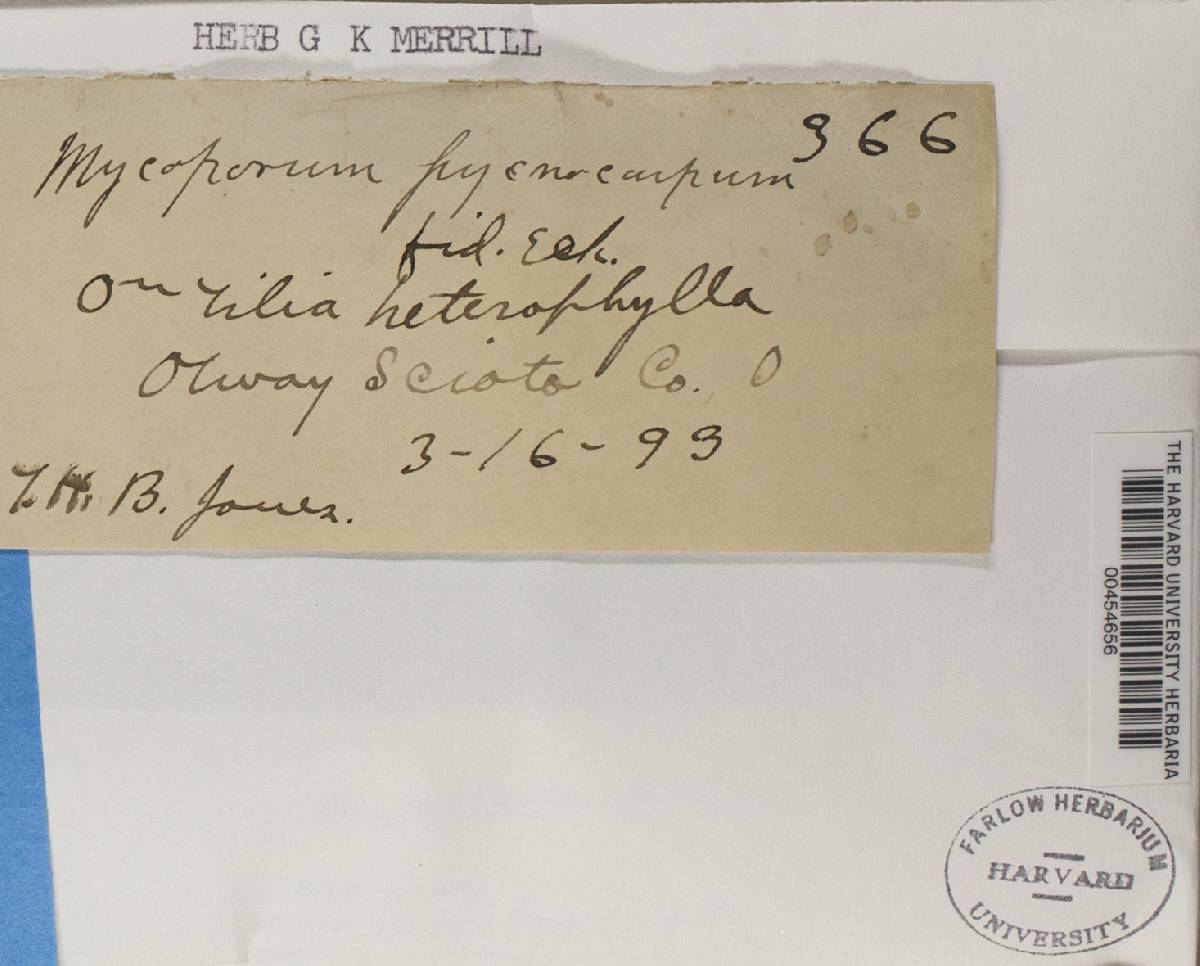 HERB G K MERRILL
366
Mycoporum pycnocarpum
fid. Eck.
On Tilia heterophylla
Otway Scioto Co. O
3-16-93
B. Jones.
THE HARVARD UNIVERSITY HERBARIA
00454656
FARLOW HERBARIUM
HARVARD
UNIVERSITY